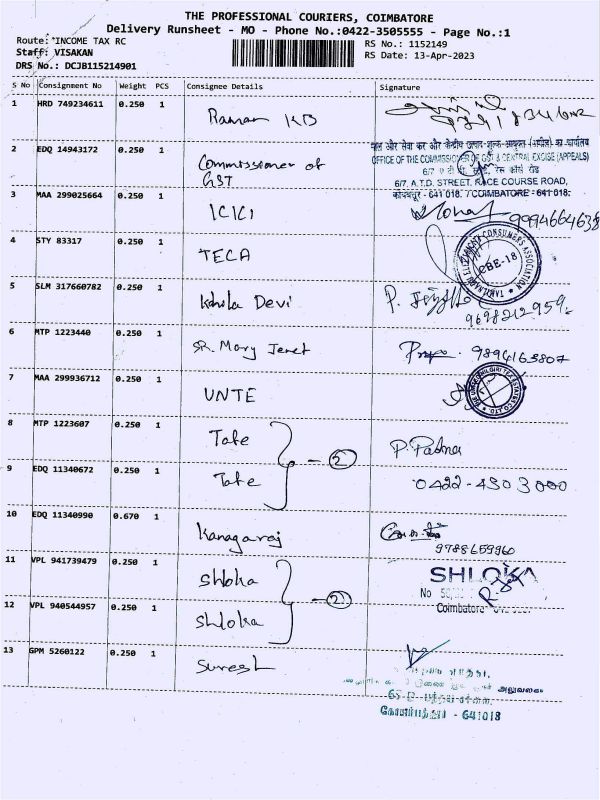 THE PROFESSIONAL COURIERS, COIMBATORE
Delivery Runsheet - MO - Phone No.:0422-3505555 - Page No.:1
Route: INCOME TAX RC
Staff: VISAKAN
DRS No.: DCJB115214901
RS No.: 1152149
RS Date: 13-Apr-2023
S No Consignment No Weight PCS Consignee Details Signature
1 HRD 749234611 0.250 1 Raman KB
2 EDQ 14943172 0.250 1 Commissioner of GST
OFFICE OF THE COMMISSIONER OF GST & CENTRAL EXCISE (APPEALS)
6/7, A.T.D. STREET, RACE COURSE ROAD,
कोयंबतूर - 641 018. / COIMBATORE - 641 018.
3 MAA 299025664 0.250 1 ICICI 9994664638
4 STY 83317 0.250 1 TECA
CBE-18
5 SLM 317660782 0.250 1 Devi P. 9698212959
6 MTP 1223440 0.250 1 SR. Mary Jenet 9894163807
7 MAA 299936712 0.250 1 UNTE
8 MTP 1223607 0.250 1 Tate
2
9 EDQ 11340672 0.250 1 Tate 0422-4503000
10 EDQ 11340990 0.670 1 Kanagaraj
9788659960
11 VPL 941739479 0.250 1 Shloka SHLOKA
No
2
12 VPL 940544957 0.250 1 Shloka Coimbatore
13 GPM 5260122 0.250 1 Suresh
அலுவலகம்
கோயம்பத்தூர் - 641018